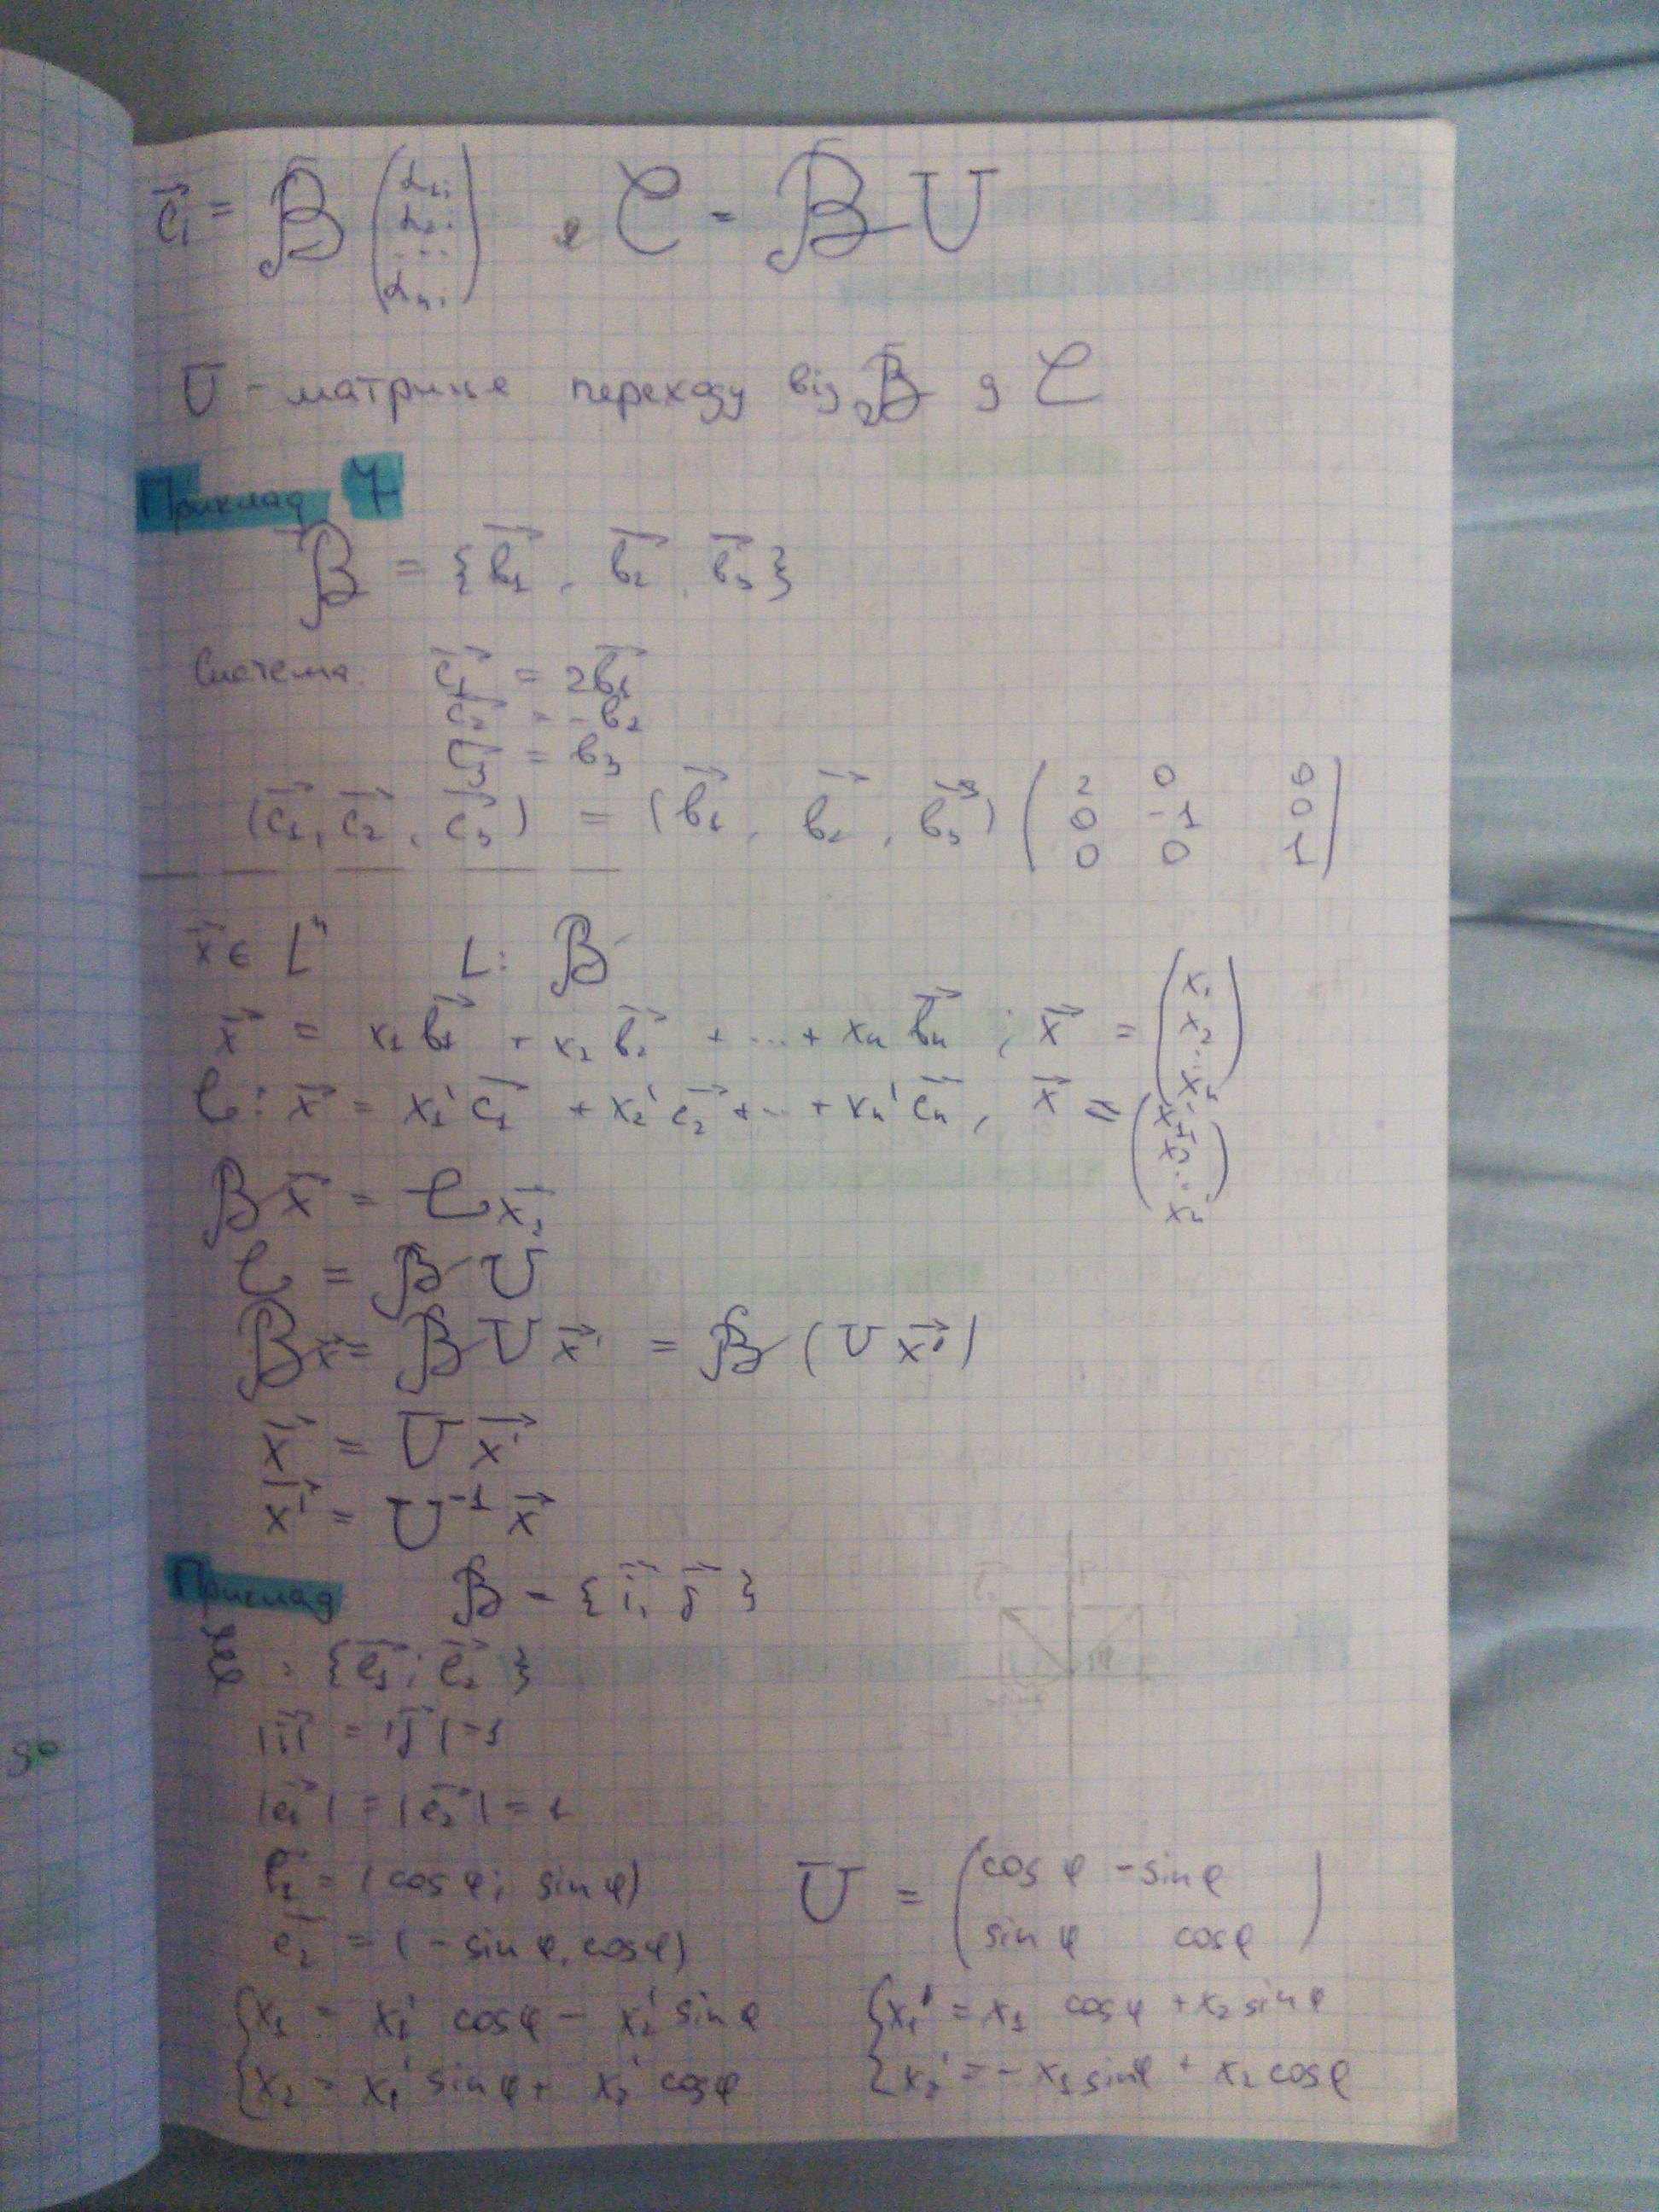 c⃗ᵢ = ℬ (α₁ᵢ α₂ᵢ ... αₙᵢ) , 𝒞 = ℬ U
U - матриця переходу від ℬ д 𝒞
Приклад 7
ℬ = {b⃗₁, b⃗₂, b⃗₃}
Система: c⃗₁ = 2b⃗₁
c⃗₂ = -b₂
c⃗₃ = b₃
(c⃗₁, c⃗₂, c⃗₃) = (b⃗₁, b⃗₂, b⃗₃) (2 0 0
0 -1 0
0 0 1)
x⃗ ∈ Lⁿ L: ℬ
x⃗ = x₁b⃗₁ + x₂b⃗₂ + ... + xₙb⃗ₙ ; x⃗ = (x₁ x₂ ... xₙ)
𝒞: x⃗ = x₁'c⃗₁ + x₂'c⃗₂ + ... + xₙ'c⃗ₙ, x⃗ = (x₁' x₂' ... xₙ')
ℬx⃗ = 𝒞x⃗'
𝒞 = ℬU
ℬx⃗ = ℬUx⃗' = ℬ(Ux⃗')
x⃗ = Ux⃗'
x⃗' = U⁻¹x⃗
Приклад ℬ = {i⃗, j⃗}
= {e⃗₁; e⃗₂}
|i⃗| = |j⃗| = 1
|e⃗₁| = |e⃗₂| = 1
e⃗₁ = (cos φ; sin φ) U = (cos φ -sin φ
e⃗₂ = (-sin φ, cos φ) sin φ cos φ)
{x₁ = x₁' cos φ - x₂' sin φ {x₁' = x₁ cos φ + x₂ sin φ
{x₂ = x₁' sin φ + x₂' cos φ {x₂' = -x₁ sin φ + x₂ cos φ
до